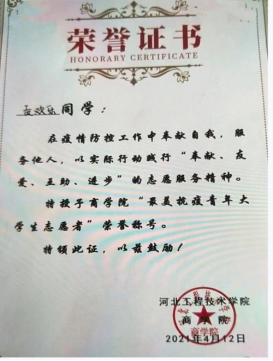 荣誉证书
HONORARY CERTIFICATE
同学：
在疫情防控工作中奉献自我，服
务他人，以实际行动践行“奉献、友
爱、互助、进步”的志愿服务精神。
特授予商学院“最美抗疫青年大
学生志愿者”荣誉称号。
特颁此证，以兹鼓励！
河北工程技术学院
商学院
2021年4月12日
商学院